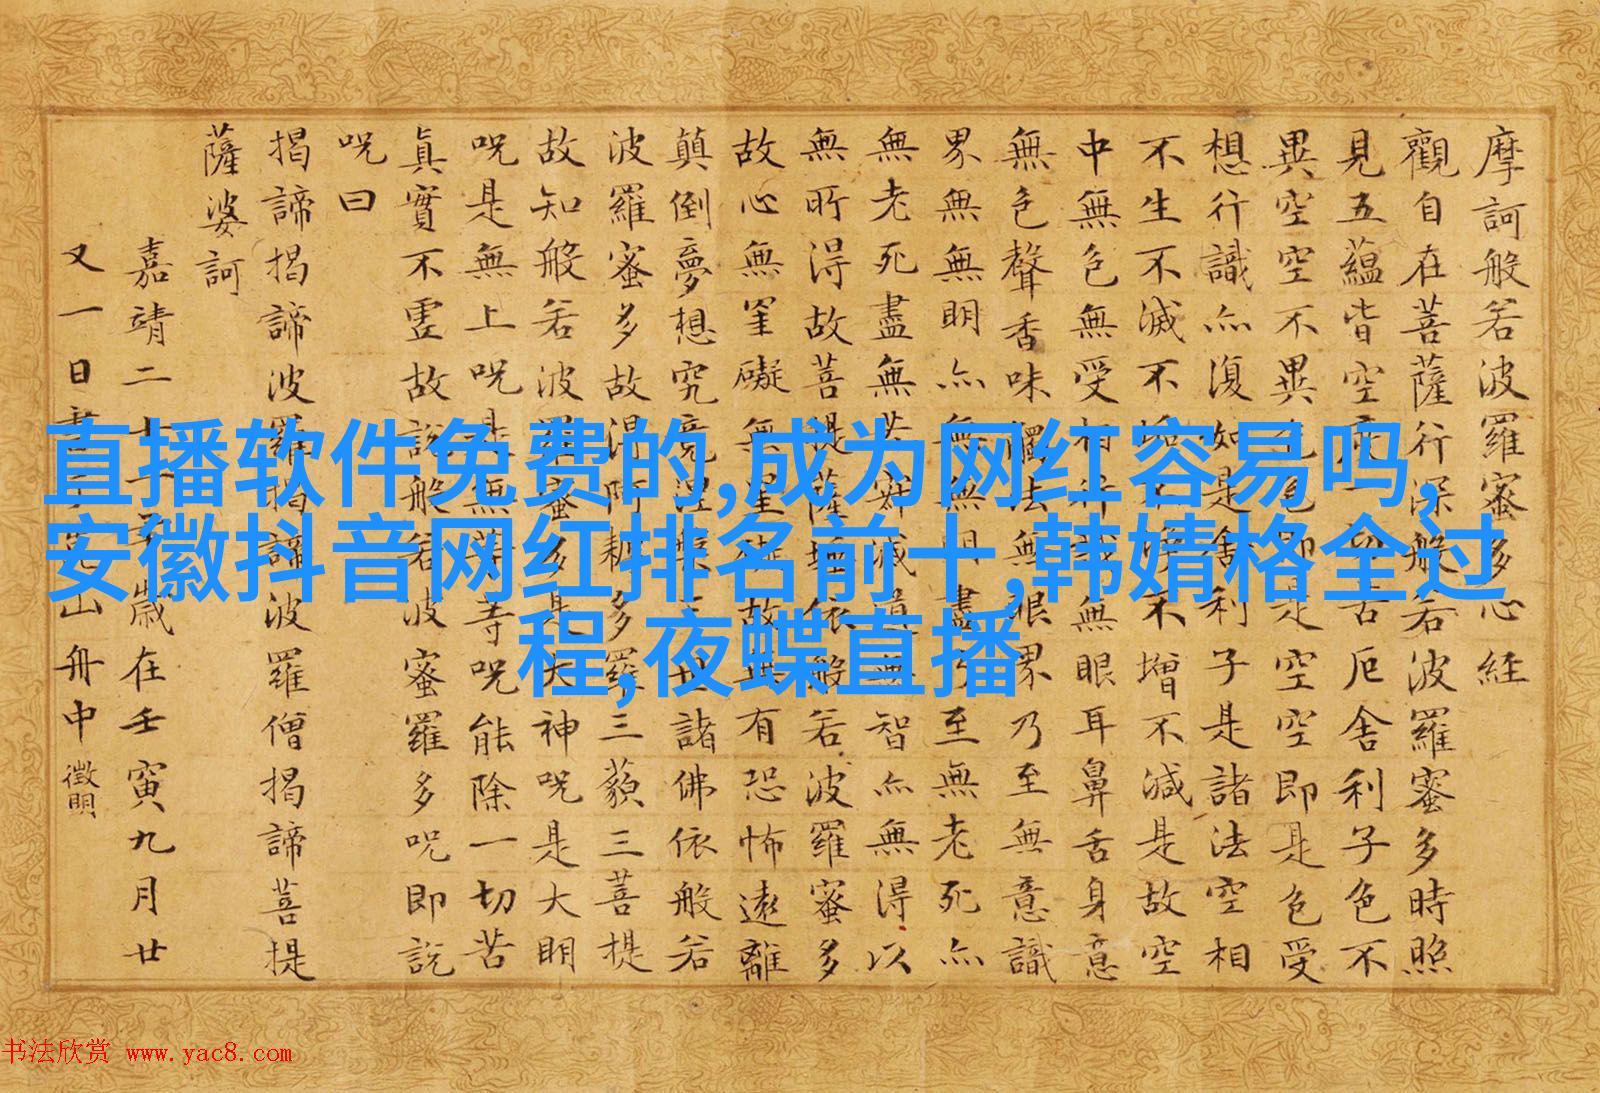 摩訶般若波羅蜜多心經
觀自在菩薩行深般若波羅蜜多時照
見五蘊皆空度一切苦厄舍利子色不
異空空不異色色即是空空即是色受
想行識亦復如是舍利子是諸法空相
不生不滅不垢不淨不增不減是故空
中無色無受相行識無眼耳鼻舌身意
無色聲香味觸法無眼界乃至無意識
界無無明亦無無明盡乃至無老死亦
無老死盡無苦寂滅道無智亦無得以
無所得故菩提薩埵依般若波羅蜜多
故心無罣礙無罣礙故無有恐怖遠離
顛倒夢想究竟涅槃三世諸佛依般若
波羅蜜多故得阿耨多羅三藐三菩提
故知般若波羅蜜多是大神咒是大明
咒是無上咒是無等等咒能除一切苦
真實不虛故說般若波蜜羅多咒即説
咒曰
揭諦揭諦波羅揭諦波羅僧揭諦菩提
薩婆訶
嘉靖二十一年歲在壬寅九月廿
又一日書崑山舟中 徵明
直播软件免费的,成为网红容易吗,
安徽抖音网红排名前十,韩婧格全过
程,夜蝶直播
书法欣赏 www.yac8.com